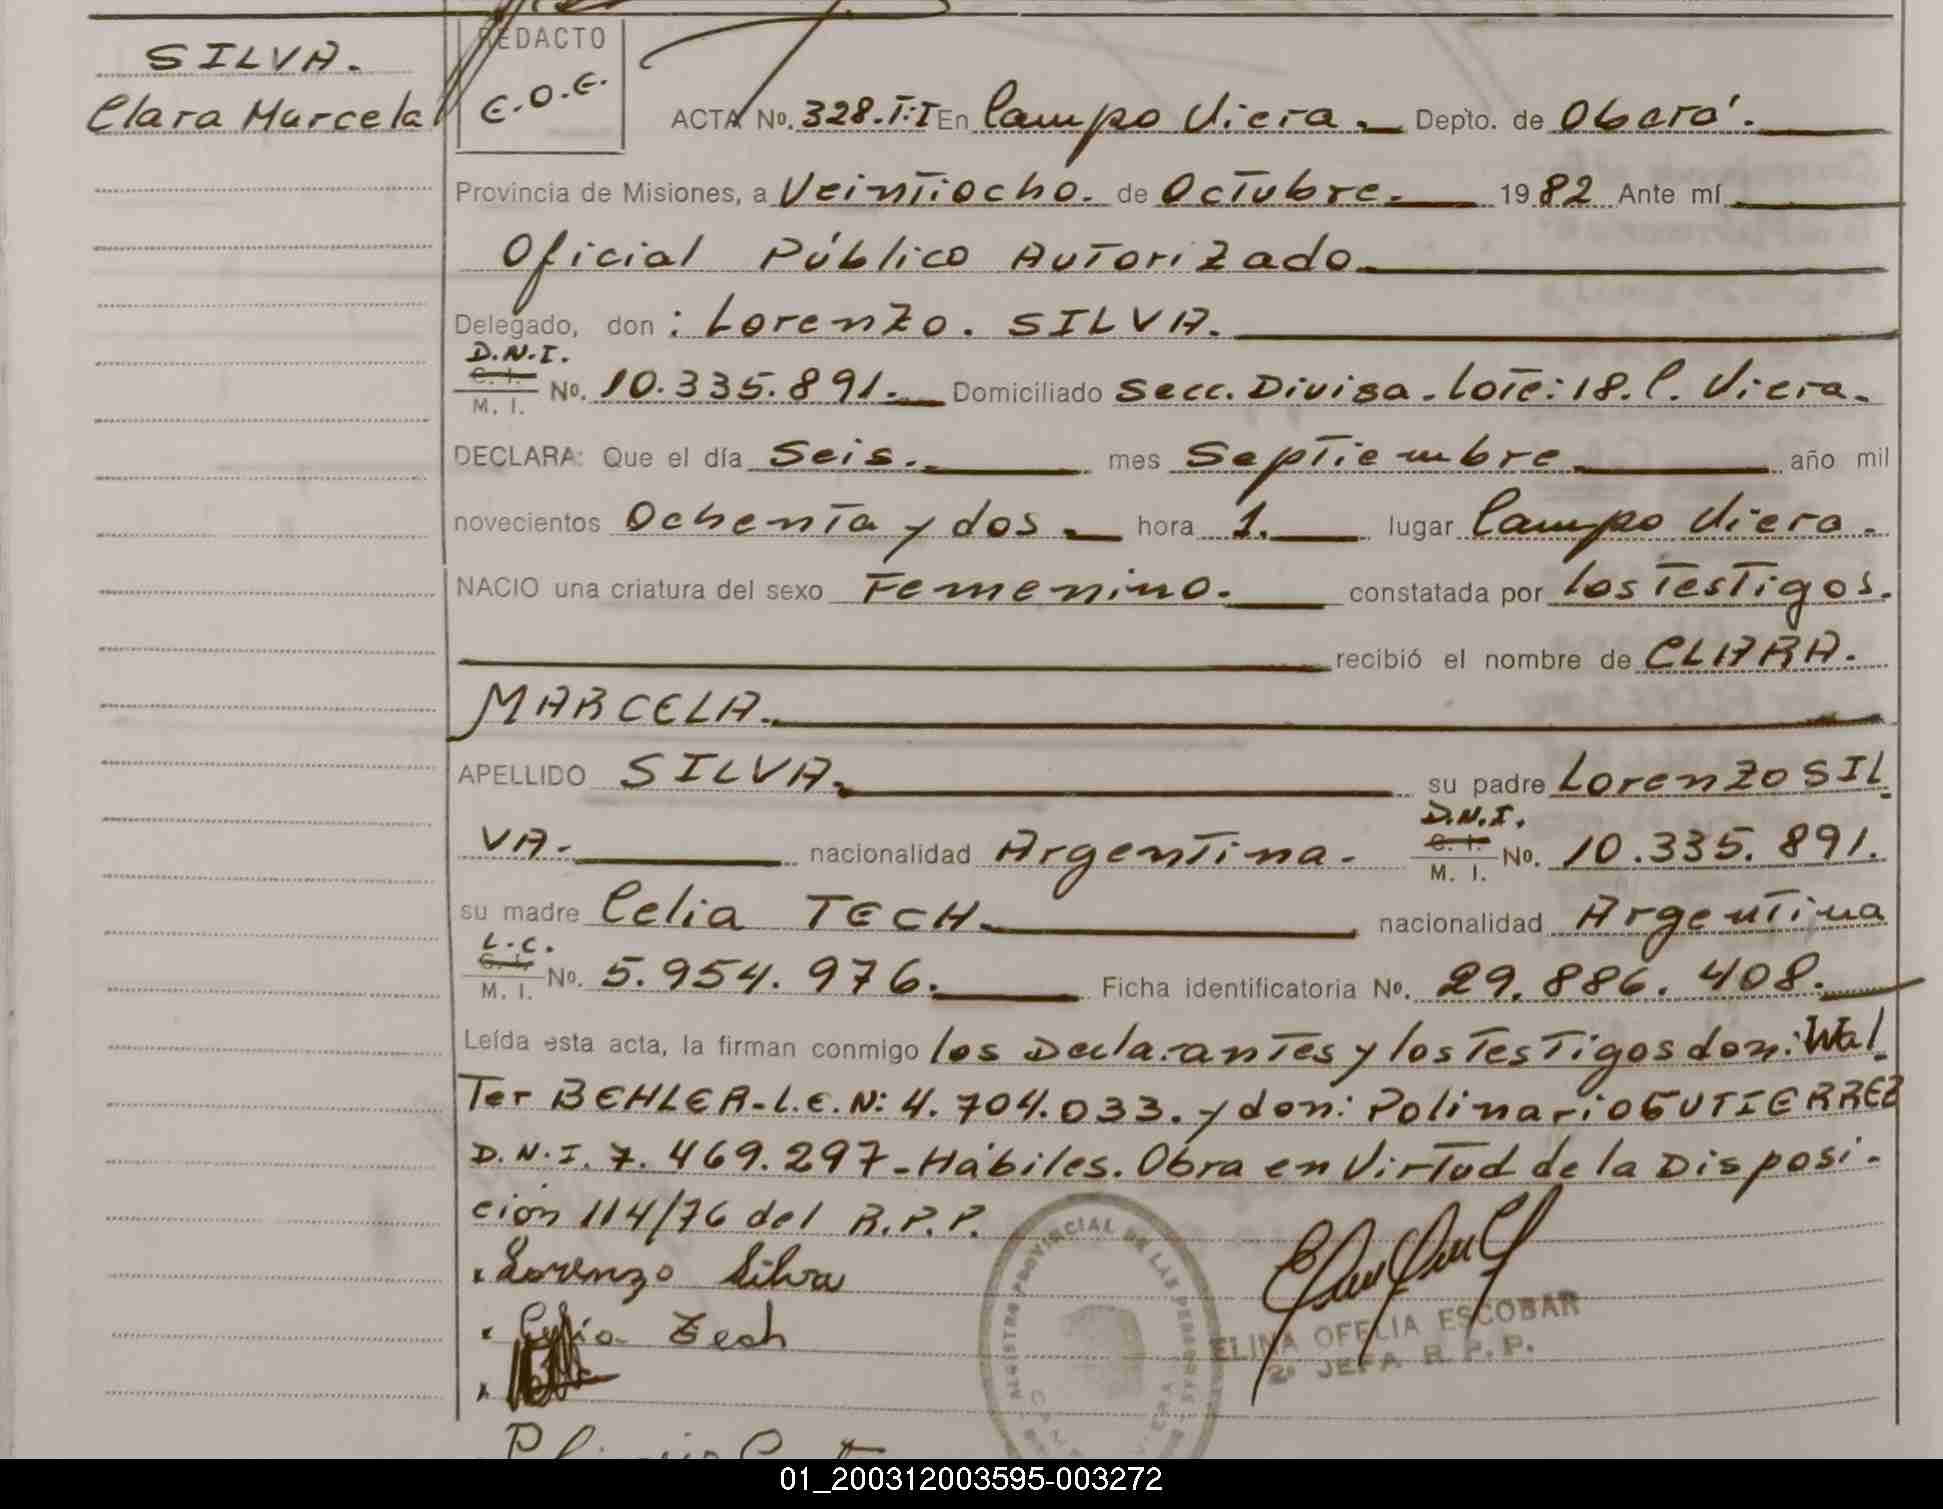 SILVA.
Clara Marcela
REDACTO
E.O.E.
ACTA No. 328.T:I En Campo Viera. Depto. de Oberá.
Provincia de Misiones, a Veintiocho. de Octubre. 1982 Ante mí
Oficial Público Autorizado.
Delegado, don: Lorenzo. SILVA.
D.N.I.
C. I.
M. I.
No. 10.335.891. Domiciliado Secc. Divisa. Lote: 18. C. Viera.
DECLARA: Que el día Seis. mes Septiembre año mil
novecientos Ochenta y dos. hora 1. lugar Campo Viera.
NACIO una criatura del sexo Femenino. constatada por los Testigos.
recibió el nombre de CLARA.
MARCELA.
APELLIDO SILVA. su padre Lorenzo SIL
VA. nacionalidad Argentina.
D.N.I.
C. I.
M. I.
No. 10.335.891.
su madre Celia TECH. nacionalidad Argentina
L.C.
C. I.
M. I.
No. 5.954.976. Ficha identificatoria No. 29.886.408.
Leída esta acta, la firman conmigo los Declarantes y los Testigos don: Wal
Ter BEHLER-L.E.N: 4.704.033. y don: Polinario GUTIERREZ
D.N.I. 7.469.297-Hábiles. Obra en Virtud de la Disposi-
ción 114/76 del R.P.P.
Lorenzo Silva
Zech
REGISTRO PROVINCIAL DE LAS PERSONAS
ELINA OFELIA ESCOBAR
2ª JEFA R.P.P.
01_200312003595-003272